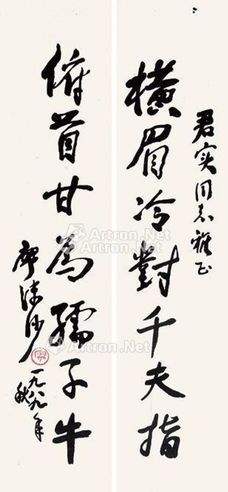 君实同志雅正
橫眉冷對千夫指
俯首甘为孺子牛
廖沫沙
一九八九年
秋
Artron.Net
Artron.Net
Artron.Net
Artron.Net